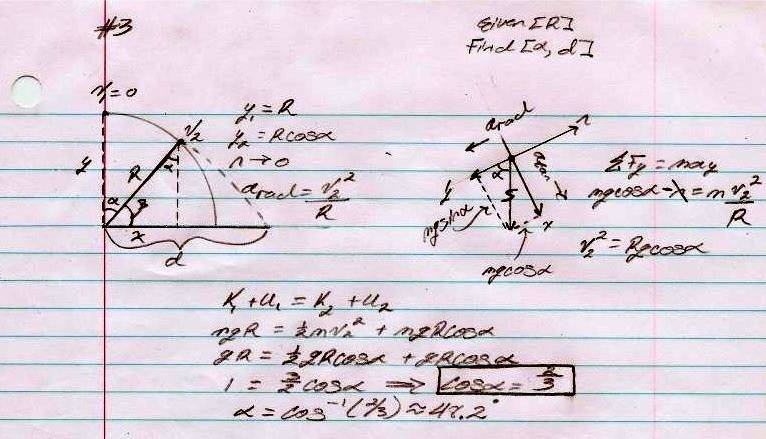 #3
Given [R]
Find [α, d]
v₁=0
v₂
y
R
α
α
x
d
y₁ = R
y₂ = Rcosα
n → 0
a_rad = v₂²/R
a_rad
n
α
a_tan
y
x
mgsinα
mgcosα
ΣFy = may
mgcosα - n = m v₂²/R
v₂² = Rgcosα
K₁ + U₁ = K₂ + U₂
mgR = ½mv₂² + mgRcosα
gR = ½gRcosα + gRcosα
1 = 3/2 cosα ⟹ cosα = 2/3
α = cos⁻¹(2/3) ≈ 47.2°